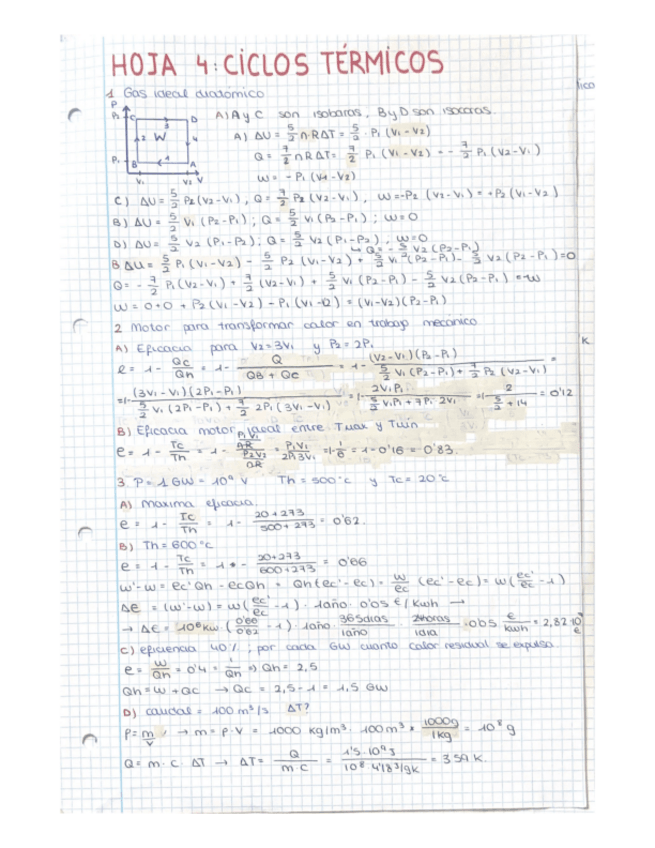 HOJA 4: CICLOS TÉRMICOS
1 Gas ideal diatómico
P
P2 C 3 D
2 W 4
P1 B 1 A
V1 V2 V
A) A y C son isobaras, B y D son isocoras.
A) ΔU = 5/2 n·RΔT = 5/2 · P1 (V1-V2)
Q = 7/2 n R ΔT = 7/2 P1 (V1-V2) = - 7/2 P1 (V2-V1)
W = - P1 (V1-V2)
C) ΔU = 5/2 P2 (V2-V1), Q = 7/2 P2 (V2-V1), W=-P2 (V2-V1) = +P2 (V1-V2)
B) ΔU = 5/2 V1 (P2-P1); Q = 5/2 V1 (P2-P1); W=0
D) ΔU = 5/2 V2 (P1-P2); Q = 5/2 V2 (P1-P2), W=0
↳ Q = - 5/2 V2 (P2-P1)
B ΔU = 5/2 P1 (V1-V2) - 5/2 P2 (V1-V2) + 5/2 V1 (P2-P1) - 5/2 V2 (P2-P1) = 0
Q = - 7/2 P1 (V2-V1) + 7/2 (V2-V1) + 5/2 V1 (P2-P1) - 5/2 V2 (P2-P1) = -W
W = 0+0 + P2 (V1-V2) - P1 (V1-V2) = (V1-V2)(P2-P1)
2 Motor para transformar calor en trabajo mecánico
A) Eficacia para V2=3V1 y P2=2P1
e = 1 - Qc/Qh = 1 - Q/(QB + QC) = 1 - (V2-V1)(P2-P1)/(5/2 V1 (P2-P1) + 7/2 P2 (V2-V1)) =
=1- (3V1-V1)(2P1-P1)/(5/2 V1 (2P1-P1) + 7/2 2P1 (3V1-V1)) = 1- 2V1P1/(5/2 V1P1 + 7P1 2V1) = 1- 2/(5/2 + 14) = 0'12
B) Eficacia motor ideal entre Tmax y Tmin
e = 1 - Tc/Th = 1 - (P1V1/nR)/(P2V2/nR) = P1V1/2P13V1 = 1- 1/6 = 1-0'16 = 0'83.
3 P = 1 GW = 10⁹ V Th = 500°C y Tc = 20°C
A) Maxima eficacia.
e = 1 - Tc/Th = 1 - (20+273)/(500+273) = 0'62.
B) Th = 600°C
e = 1 - Tc/Th = 1 - (20+273)/(600+273) = 0'66
W'-W = ec' Qh - ecQh = Qh (ec'-ec) = W/ec (ec'-ec) = W (ec'/ec - 1)
Δe = (W'-W) = W (ec'/ec - 1) · 1año · 0'05 €/kWh →
→ Δe = 10⁶ kW (0'66/0'62 - 1) · 1año · 365días/1año · 24horas/1día · 0'05 €/kWh = 2,82·10⁷ €
C) eficiencia 40%, por cada GW cuanto calor residual se expulsa.
e = W/Qh = 0'4 = 1/Qh ⇒ Qh = 2,5
Qh = W + Qc → Qc = 2,5-1 = 1,5 GW
D) caudal = 100 m³/s ΔT?
P = m/V → m = P·V = 1000 kg/m³ · 100 m³ · 1000g/1kg = 10⁸ g
Q = m·c·ΔT → ΔT = Q/m·c = 1'5·10⁹ J/10⁸ 4'18 J/gK = 3'59 K.